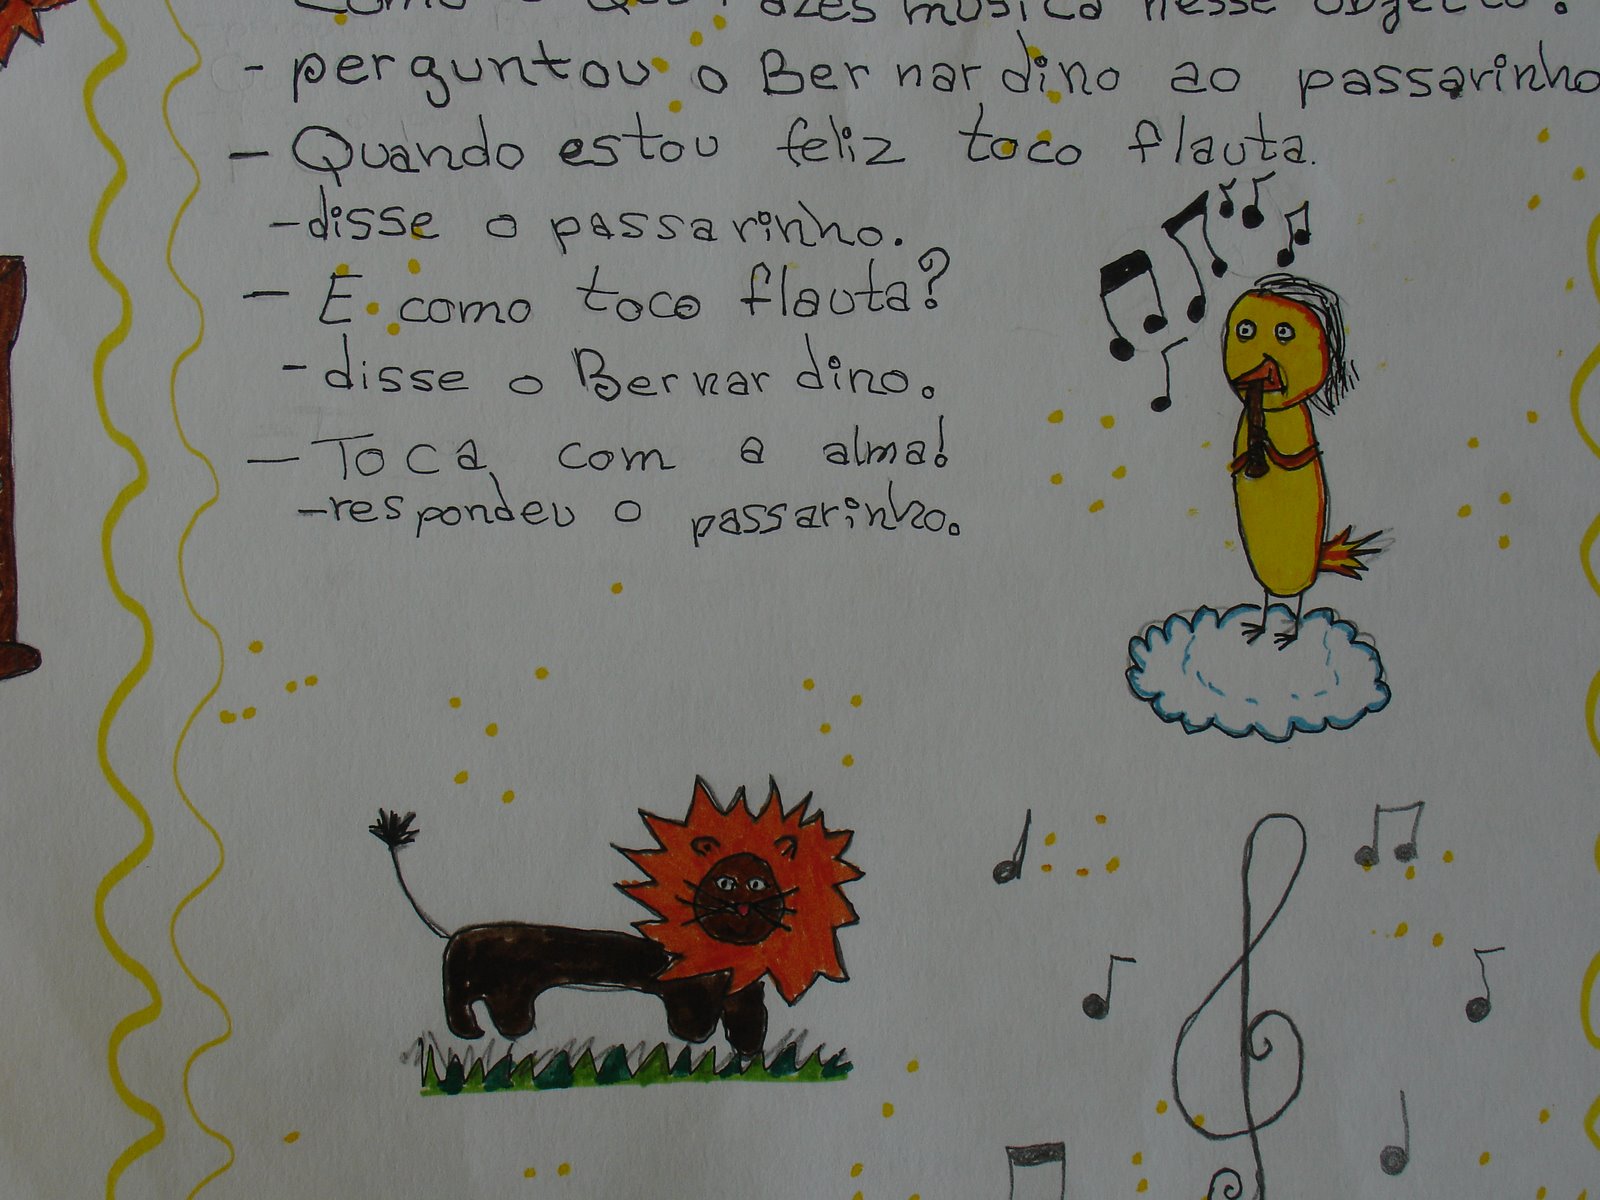 Como é que fazes música nesse objecto?
- perguntou o Bernardino ao passarinho
- Quando estou feliz toco flauta.
- disse o passarinho.
- E como toco flauta?
- disse o Bernardino.
- Toca com a alma!
- respondeu o passarinho.